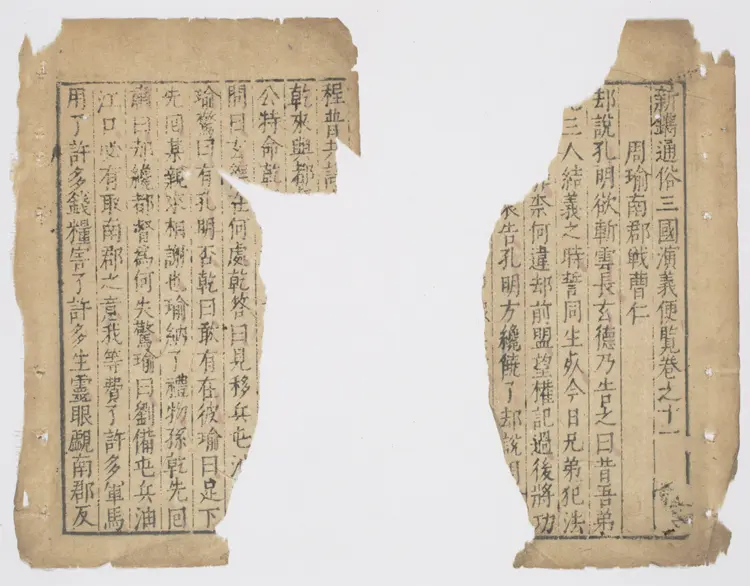 新鐫通俗三國演義便覧卷之十一
周瑜南郡戰曹仁
却說孔明欲斬雲長玄德乃告之曰昔吾弟
三人結義之時誓同生死今日兄弟犯法
奈何違却前盟望權記過後將功
告孔明方纔饒了却說
程普共
乾來與都
公特命乾
問曰玄德在何處乾答曰見移兵屯
瑜驚曰有孔明否乾曰敢有在彼瑜曰足下
先回某親來相謝也瑜納了禮物孫乾先回
肅曰却纔都督為何失驚瑜曰劉備屯兵油
江口必有取南郡之意我等費了許多軍馬
用了許多錢糧害了許多生靈眼覷南郡反